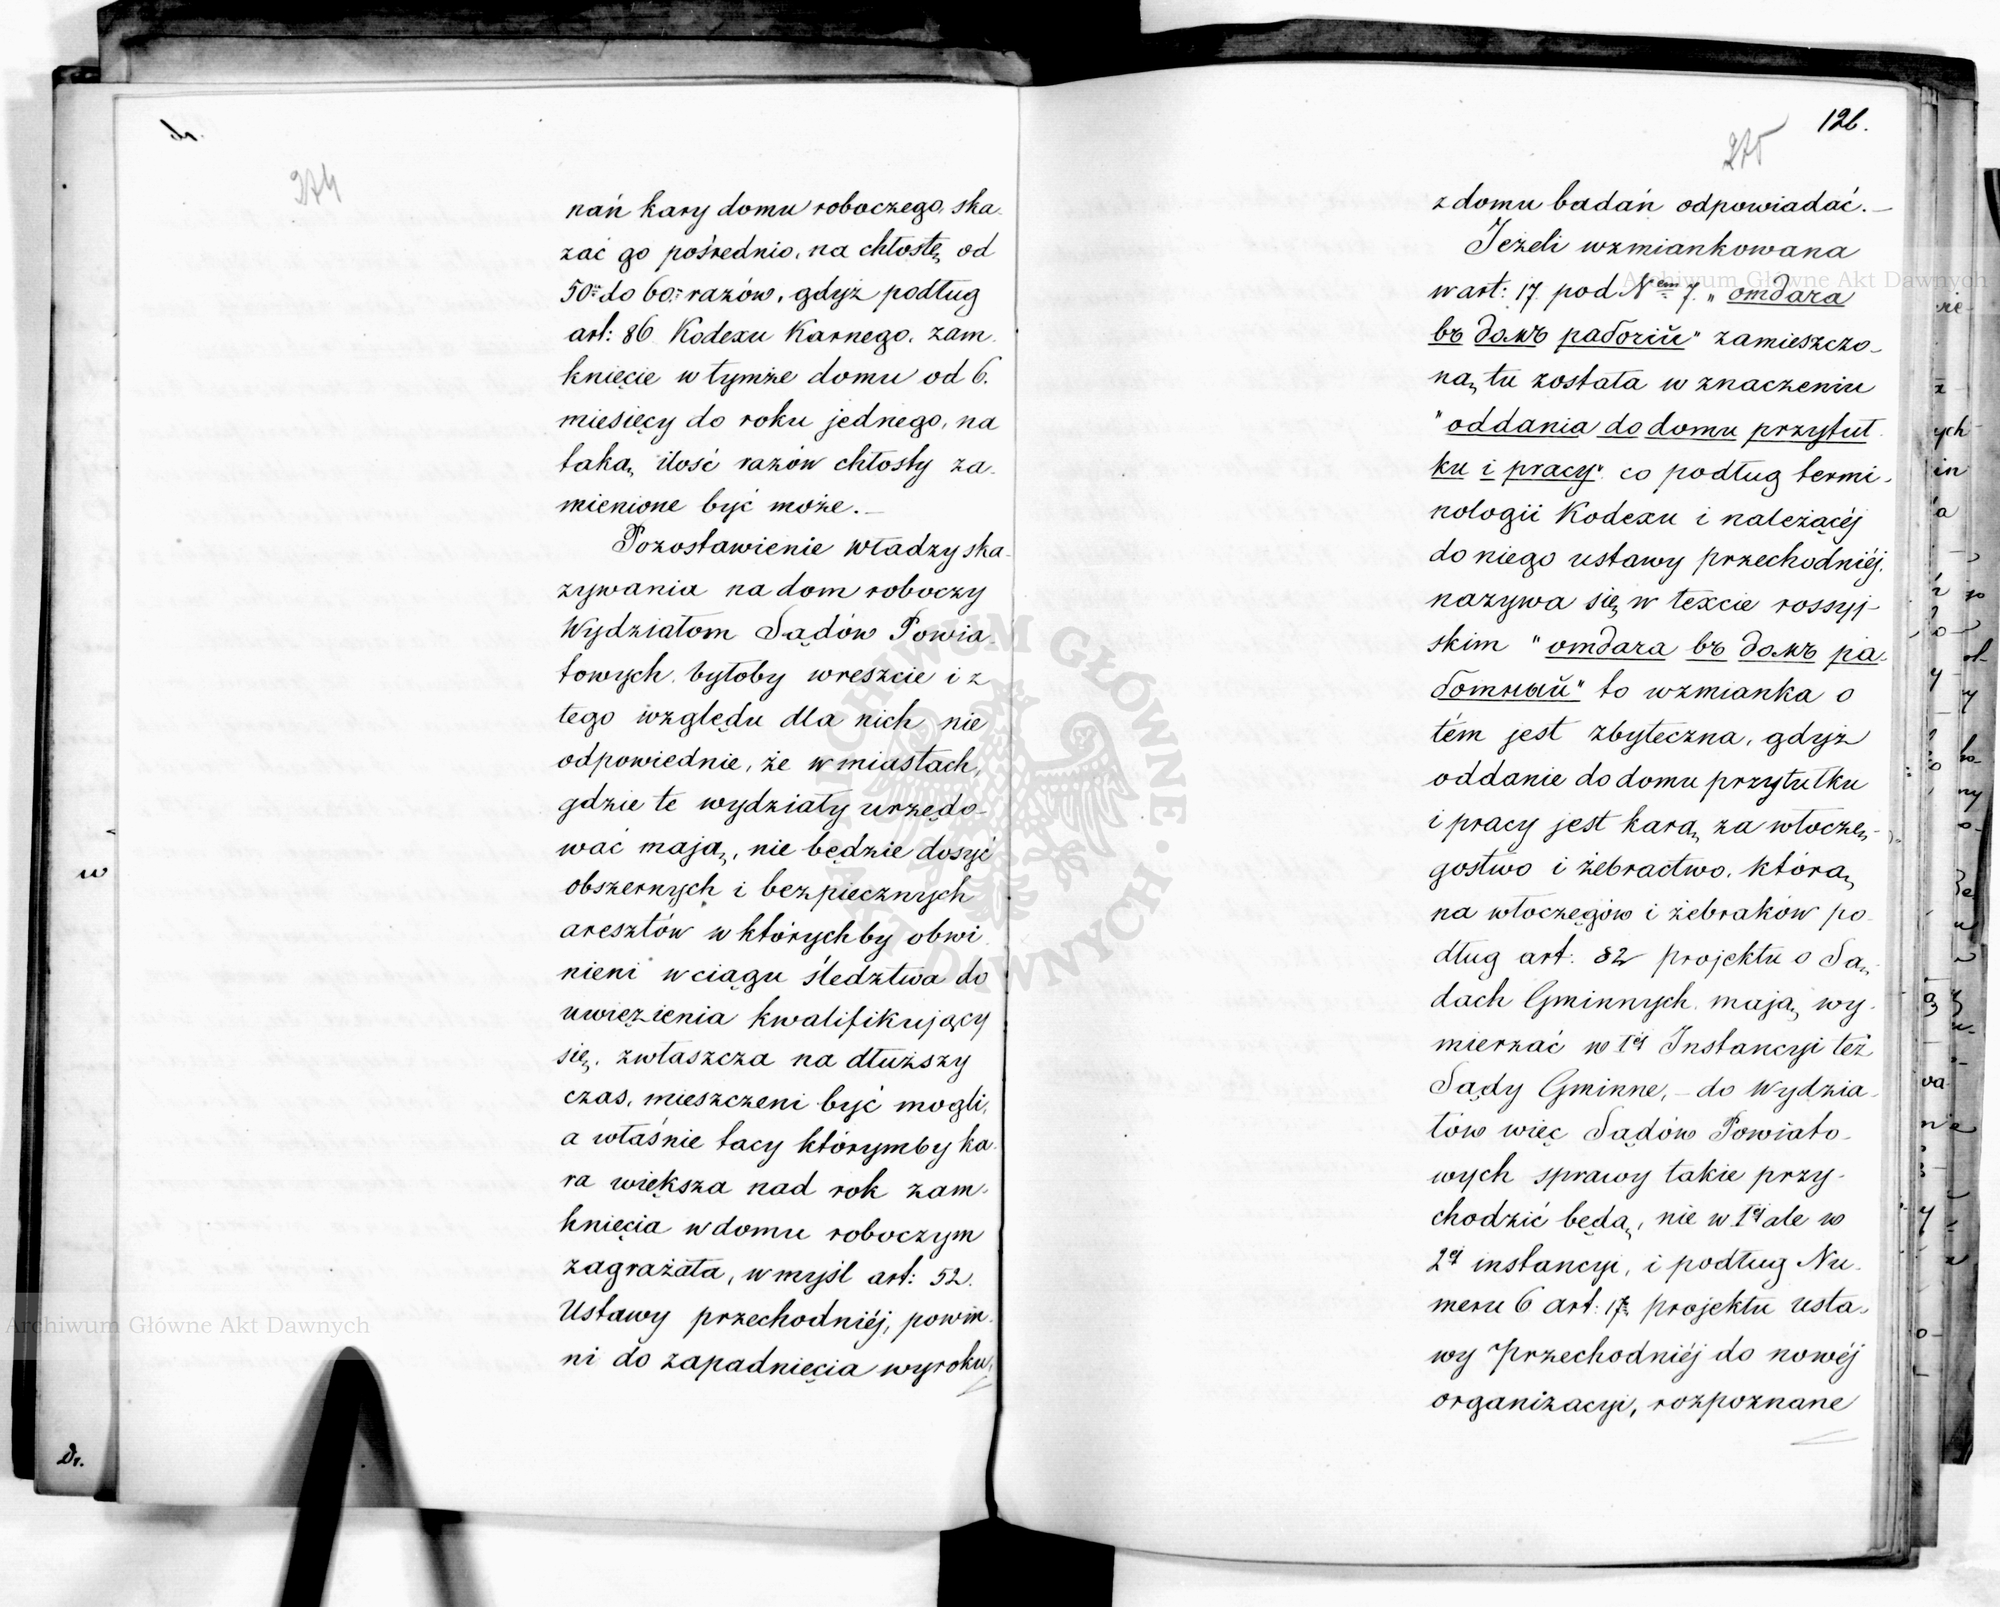 274
nań kary domu roboczego, ska-
zać go pośrednio, na chłostę, od
50iu do 60iu razów, gdyż podług
art: 86 Kodexu Karnego, zam-
knięcie w tymże domu od 6.
miesięcy do roku jednego, na
taką ilość razów chłosty za-
mienione być może.—
Pozostawienie władzy ska-
zywania na dom roboczy
Wydziałom Sądów Powia-
towych, byłoby wreszcie i z
tego względu dla nich nie
odpowiednie, że w miastach,
gdzie te wydziały urzędo-
wać mają, nie będzie dosyć
obszernych i bezpiecznych
aresztów w którychby obwi-
nieni w ciągu śledztwa do
uwięzienia kwalifikujący
się, zwłaszcza na dłuższy
czas, mieszczeni być mogli,
a właśnie tacy którymby ka-
ra większa nad rok zam-
knięcia w domu roboczym
zagrażała, w myśl art: 52.
Ustawy przechodniéj, powin-
ni do zapadnięcia wyroku,
126.
275
z domu badań odpowiadać.—
Jeżeli wzmiankowana
w art: 17. pod Nem 7. "отдача
въ домъ рабочій" zamieszczo-
ną tu została w znaczeniu
"oddania do domu przytuł-
ku i pracy" co podług termi-
nologii Kodexu i należącéj
do niego ustawy przechodniéj,
nazywa się w texcie rossyj-
skim "отдача въ домъ ра-
ботный" to wzmianka o
tém jest zbyteczna, gdyż
oddanie do domu przytułku
i pracy jest karą za włóczę-
gostwo i żebractwo, którą
na włoczęgów i żebraków po-
dług art: 82 projektu o Są-
dach Gminnych, mają wy-
mierzać w 1éj Instancyi też
Sądy Gminne,— do Wydzia-
łów więc Sądów Powiato-
wych sprawy takie przy-
chodzić będą, nie w 1éj ale w
2éj instancyi, i podług Nu-
meru 6 art: 17. projektu usta-
wy Przechodniéj do nowéj
organizacyi, rozpoznane
Archiwum Główne Akt Dawnych
Archiwum Główne Akt Dawnych
ARCHIWUM GŁÓWNE AKT DAWNYCH